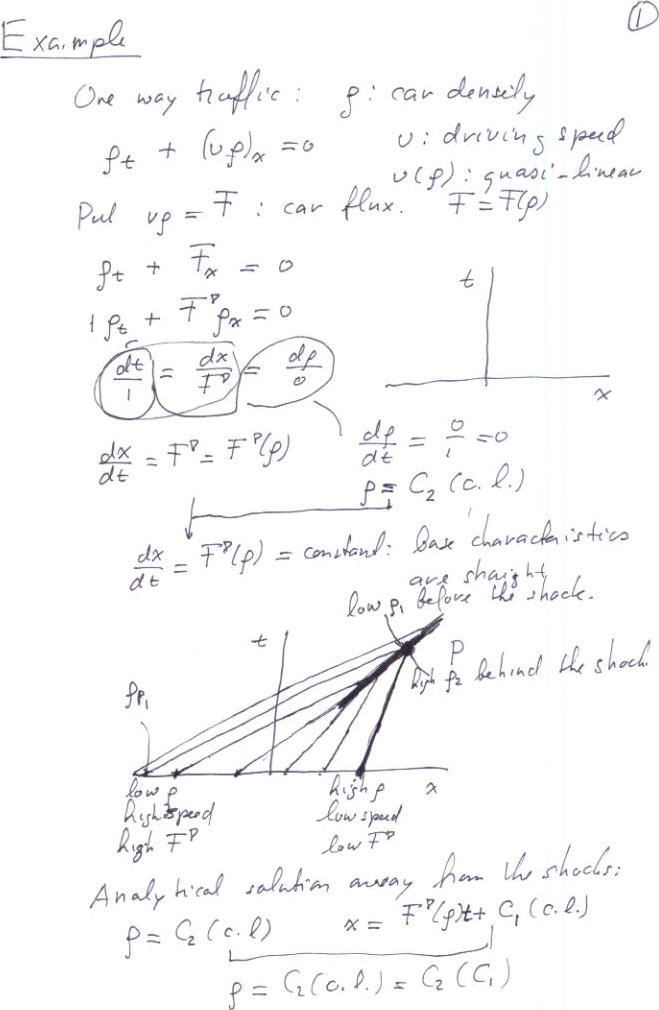 ①
Example
One way traffic: ρ: car density
ρt + (vρ)x = 0 v: driving speed
v(ρ): quasi-linear
Put vρ = F : car flux. F = F(ρ)
ρt + Fx = 0
1 ρt + F^ρ ρx = 0
t
x
dt/1 = dx/F^ρ = dρ/0
dx/dt = F^ρ = F^ρ(ρ) dρ/dt = 0/1 = 0
ρ = C2 (c.l.)
dx/dt = F^ρ(ρ) = constant: base characteristics
are straight
low ρ1 before the shock.
t
P
high ρ2 behind the shock
ρP1
low ρ high ρ x
high speed low speed
high F^ρ low F^ρ
Analytical solution away from the shocks:
ρ = C2 (c.l.) x = F^ρ(ρ)t + C1 (c.l.)
ρ = C2 (c.l.) = C2 (C1)